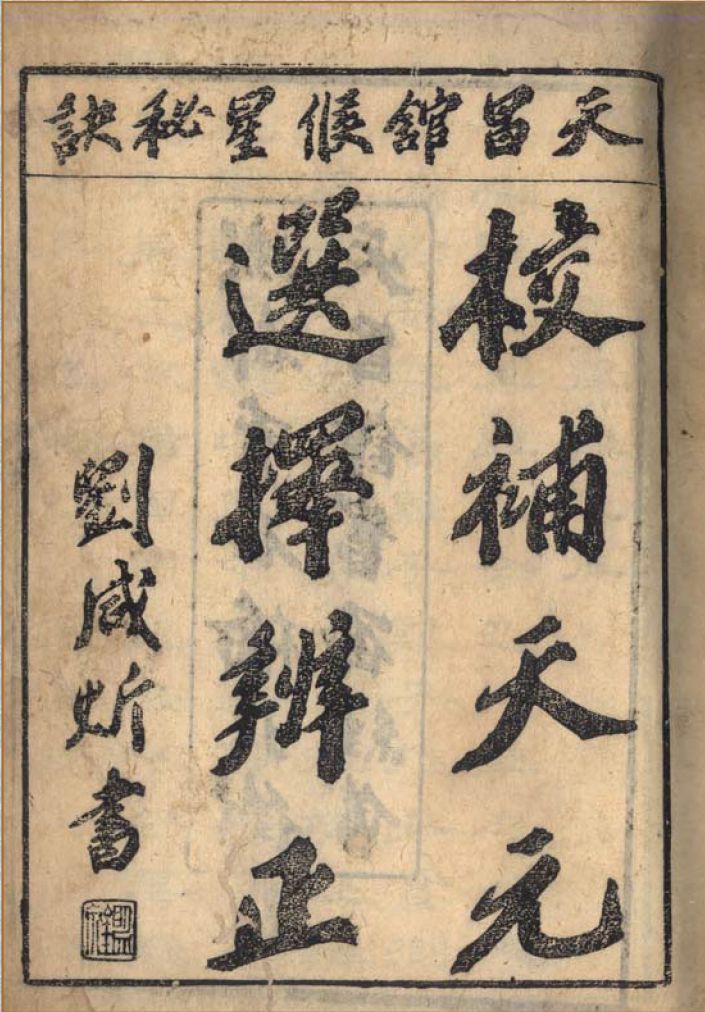 天昌舘候星秘訣
校補天元
選擇辨正
劉咸炘書